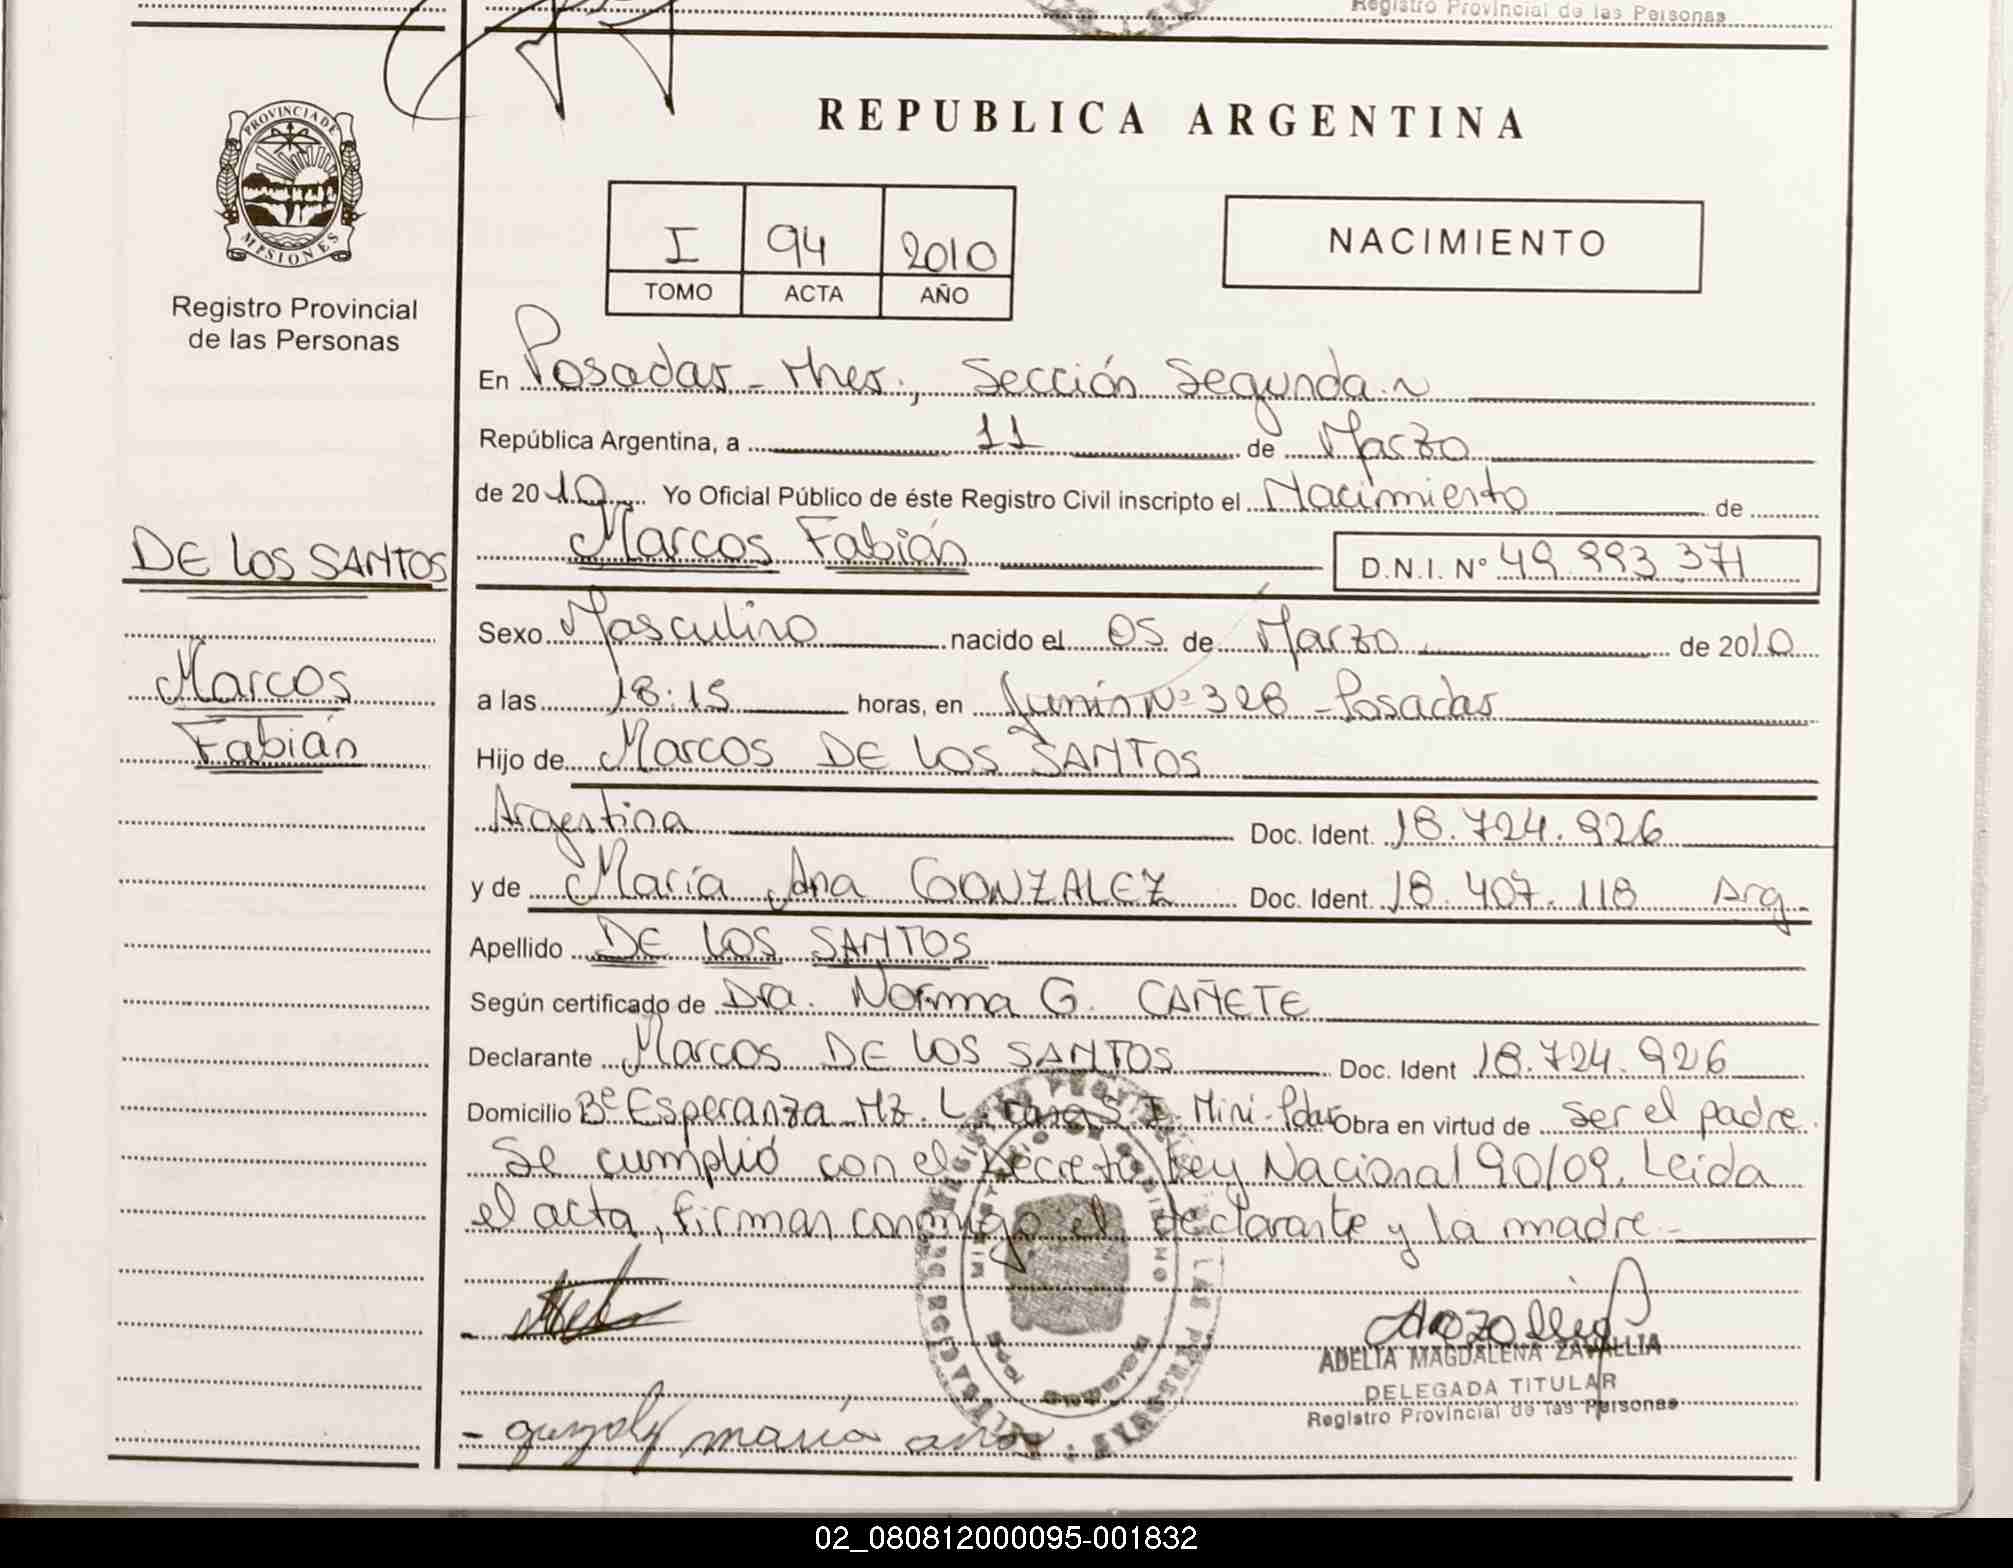 Registro Provincial de las Personas
REPUBLICA ARGENTINA
PROVINCIA DE
MISIONES
Registro Provincial
de las Personas
I 94 2010
TOMO ACTA AÑO
NACIMIENTO
En Posadas - Mnes., Sección Segunda.~
República Argentina, a 11 de Marzo
de 2010 Yo Oficial Público de éste Registro Civil inscripto el Nacimiento de
Marcos Fabián D.N.I. Nº 49.993.371
DE LOS SANTOS
Marcos
Fabián
Sexo Masculino nacido el 05 de Marzo de 2010
a las 18:15 horas, en Junín Nº 328 - Posadas
Hijo de Marcos DE LOS SANTOS
Argentina Doc. Ident. 18.724.926
y de María Ana GONZALEZ Doc. Ident. 18.407.118 Arg.
Apellido DE LOS SANTOS
Según certificado de Dra. Norma G. CAÑETE
Declarante Marcos DE LOS SANTOS Doc. Ident 18.724.926
Domicilio Bº Esperanza Mz. L casa 5 I. Mini-Pdas Obra en virtud de ser el padre.
Se cumplió con el Decreto Ley Nacional 90/09. Leida
el acta, firman conmigo el declarante y la madre.-
ADELIA MAGDALENA ZAVALLIA
DELEGADA TITULAR
Registro Provincial de las Personas
- gonzalez maría ana
02_080812000095-001832